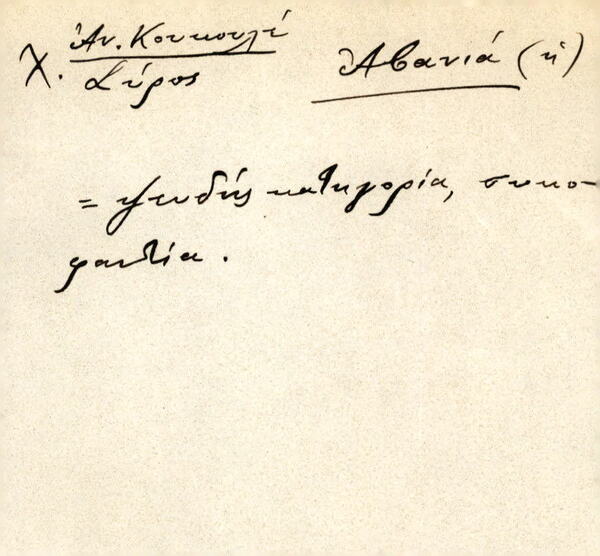 Χ. Ἀν. Κουκουλέ
Σύρος
Ἀβανιά (ἡ)
= ψευδής κατηγορία, συκο-
φαντία.